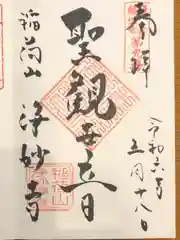 奉拝
令和六年
五月十八日
聖観世音
稲荷山
浄妙寺